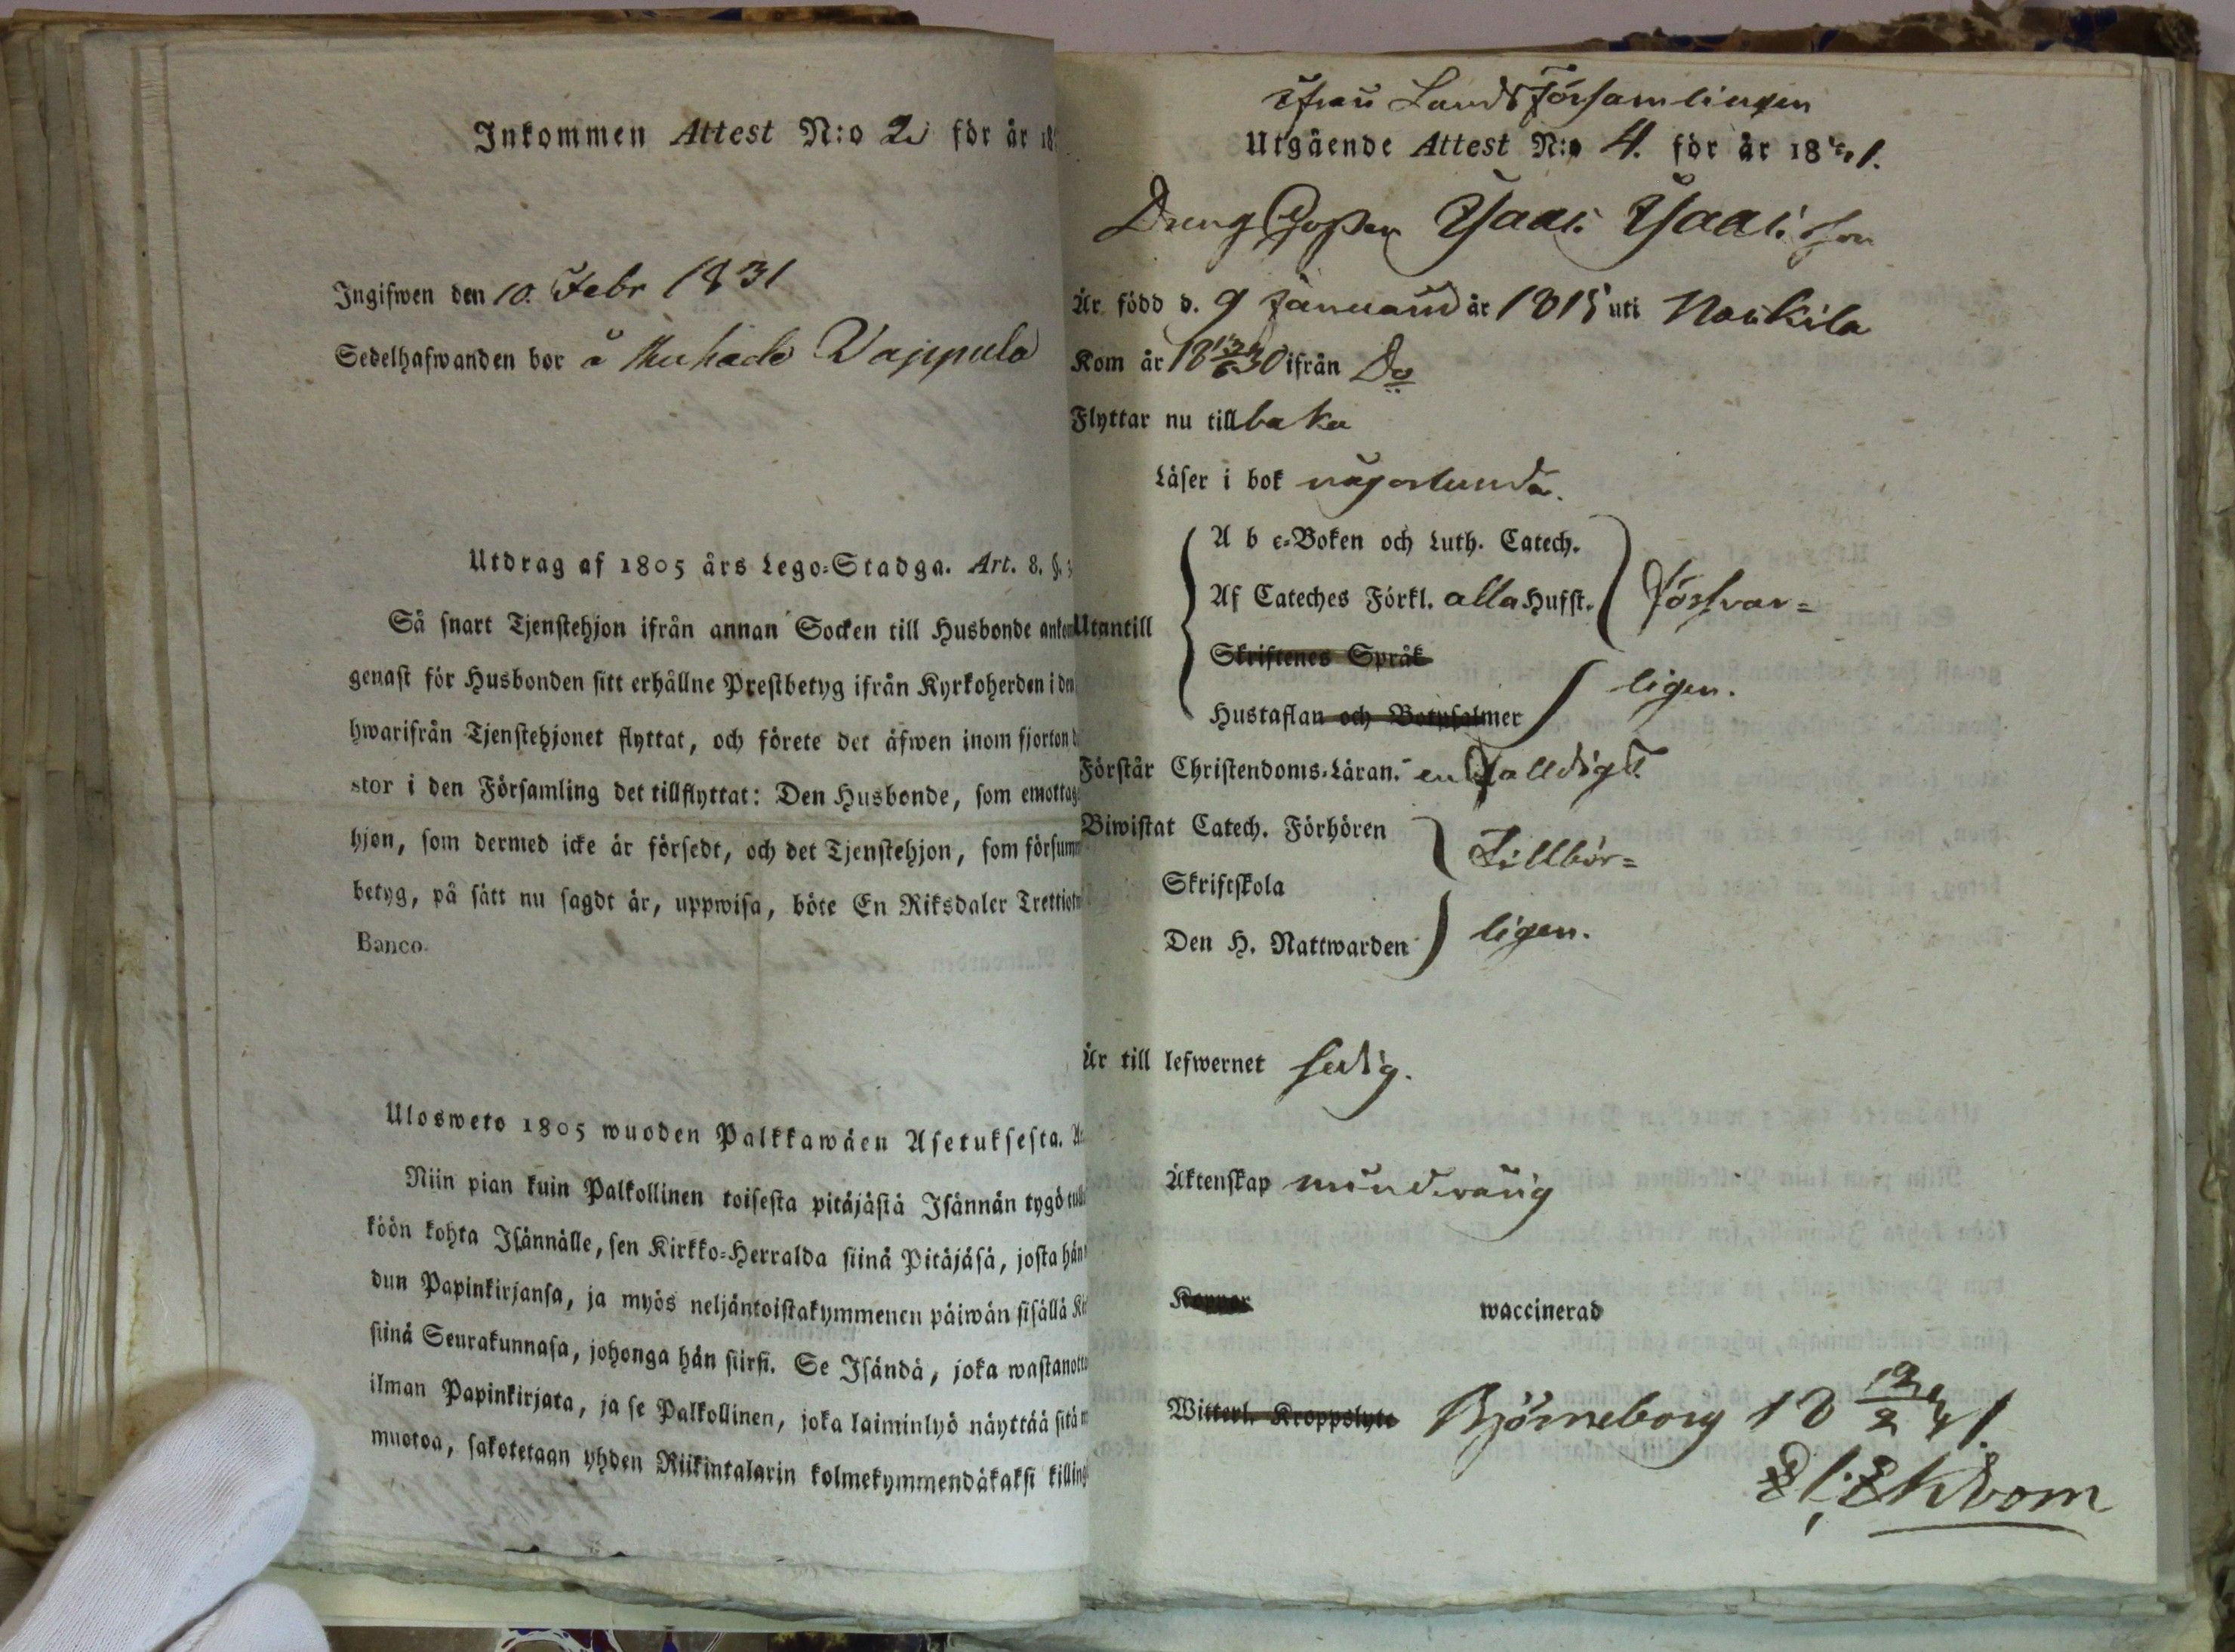 Inkommen Attest N:o 2 för år 18
Ingifwen den 10. Febr 1831
Sedelhafwanden bor å Vappula
Utdrag af 1805 års Lego-Stadga. Art. 8. §.
Så snart Tjenstehjon ifrån annan Socken till Husbonde
genast för Husbonden sitt erhållne Prestbetyg ifrån Kyrkoherden i
hwarifrån Tjenstehjonet flyttat, och förete det äfwen inom fjorton
stor i den Församling det tillflyttat: Den Husbonde, som
hjon, som dermed icke är försedt, och det Tjenstehjon, som
betyg, på sätt nu sagdt är, uppwisa, böte En Riksdaler
Banco.
Ulosweto 1805 wuoden Palkkawäen Asetuksesta.
Niin pian kuin Palkollinen toisesta pitäjästä Isännän tygö
köön kohta Isännälle, sen Kirkko-Herralda siinä Pitäjäsä, josta
dun Papinkirjansa, ja myös neljäntoistakymmenen päiwän sisällä
siinä Seurakunnasa, johonga hän siirsi. Se Isändä, joka
ilman Papinkirjata, ja se Palkollinen, joka laiminlyö näyttää sitä
muotoa, sakotetaan yhden Riikintalarin kolmekymmendäkaksi
ifrån LandsFörsamlingen
Utgående Attest N:o 4. för år 1831.
Dreng Gossen Isaac Isaacsson
Är född d. 9 Januarii år 1815 uti Nackila
Kom år 18 30 ifrån Do
Flyttar nu tillbaka
Läser i bok någorlunda.
Utantill
A b c-Boken och Luth. Catech.
Af Cateches Förkl. alla Hufst. Försvar=
Skriftenes Språk
Hustaflan och Botpsalmer ligen.
Förstår Christendoms-Läran. enfalldigt
Biwistat Catech. Förhören Tillbör=
Skriftskola
Den H. Nattwarden ligen.
Är till lefwernet sedig.
Äktenskap mindreårig
Koppor waccinerad
Witterl. Kroppslyte Björneborg 18 12/2 31.